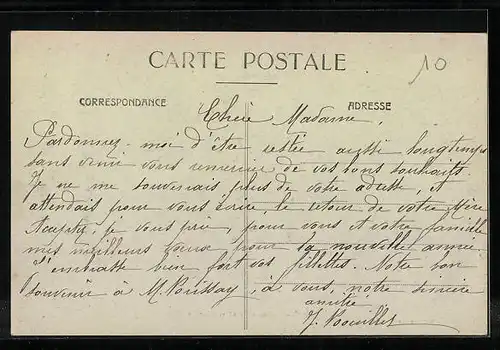 10
CARTE POSTALE
CORRESPONDANCE
ADRESSE
Chère Madame,
Pardonnez-moi d'être restée aussi longtemps
sans venir vous remercier de vos bons souhaits.
Je ne me souvenais plus de votre adresse, et
attendais pour vous écrire, le retour de votre Mère
Acceptez, je vous prie, pour vous et votre famille
mes meilleurs vœux pour la nouvelle année.
J'embrasse bien fort vos fillettes. Notre bon
souvenir à M. Boissay, à vous, notre sincère
amitié